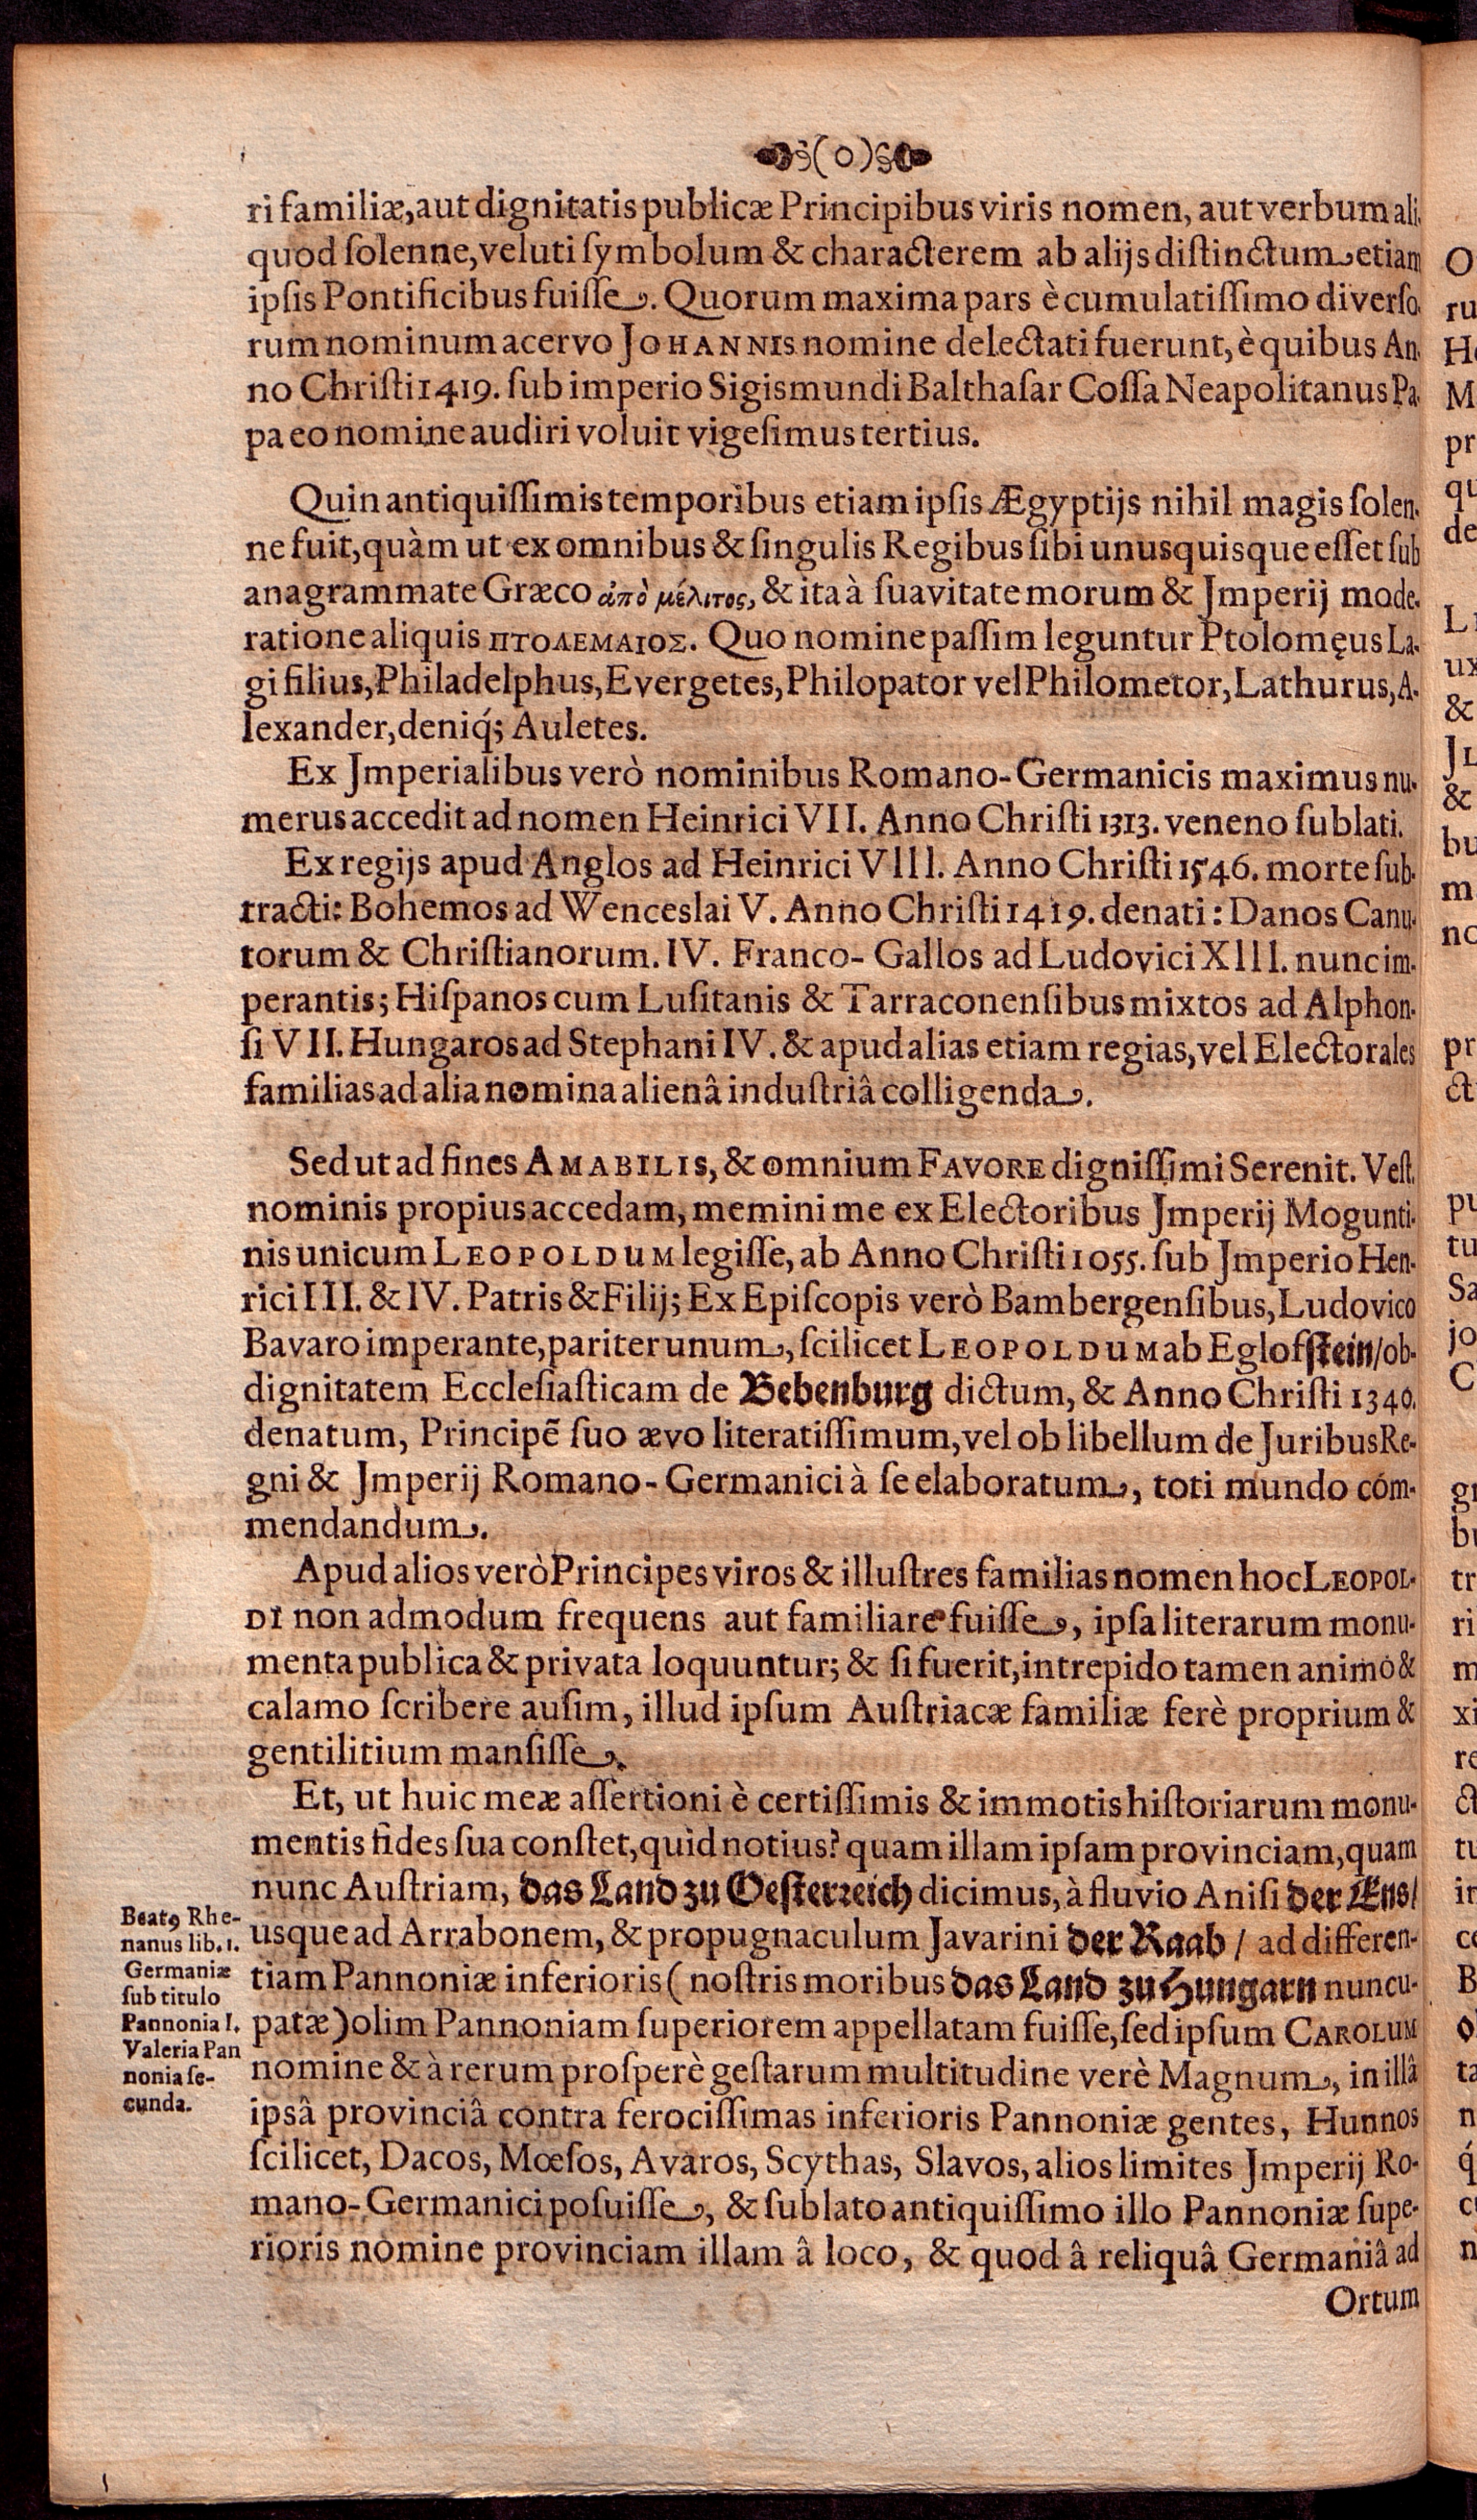 (0)
ri familiæ, aut dignitatis publicæ Principibus viris nomen, aut verbum ali-
quod ſolenne, veluti ſymbolum & characterem ab alijs diſtinctum etiam
ipſis Pontificibus fuiſſe. Quorum maxima pars è cumulatiſſimo diverſo-
rum nominum acervo JOHANNIS nomine delectati fuerunt, è quibus An-
no Chriſti 1419. ſub imperio Sigismundi Balthaſar Coſſa Neapolitanus Pa-
pa eo nomine audiri voluit vigeſimus tertius.
Quin antiquiſſimis temporibus etiam ipſis Ægyptijs nihil magis ſolen-
ne fuit, quàm ut ex omnibus & ſingulis Regibus ſibi unusquisque eſſet ſub
anagrammate Græco ἀπὸ μέλιτος, & ita à ſuavitate morum & Jmperij mode-
ratione aliquis ΠΤΟΛΕΜΑΙΟΣ. Quo nomine paſſim leguntur Ptolomęus La-
gi filius, Philadelphus, Evergetes, Philopator vel Philometor, Lathurus, A-
lexander, deniq́; Auletes.
Ex Jmperialibus verò nominibus Romano-Germanicis maximus nu-
merus accedit ad nomen Heinrici VII. Anno Chriſti 1313. veneno ſublati.
Ex regijs apud Anglos ad Heinrici Vlll. Anno Chriſti 1546. morte ſub-
tracti: Bohemos ad Wenceslai V. Anno Chriſti 1419. denati: Danos Canu-
torum & Chriſtianorum. IV. Franco-Gallos ad Ludovici Xlll. nunc im-
perantis; Hiſpanos cum Luſitanis & Tarraconenſibus mixtos ad Alphon-
ſi VII. Hungaros ad Stephani IV. & apud alias etiam regias, vel Electorales
familias ad alia nomina alienâ induſtriâ colligenda.
Sed ut ad fines AMABILIS, & omnium FAVORE digniſſimi Serenit. Veſt.
nominis propius accedam, memini me ex Electoribus Jmperij Mogunti-
nis unicum LEOPOLDUM legiſſe, ab Anno Chriſti 1055. ſub Jmperio Hen-
rici III. & IV. Patris & Filij; Ex Epiſcopis verò Bambergenſibus, Ludovico
Bavaro imperante, pariter unum, ſcilicet LEOPOLDUM ab Eglofſtein/ ob-
dignitatem Eccleſiaſticam de Bebenburg dictum, & Anno Chriſti 1340.
denatum, Principẽ ſuo ævo literatiſſimum, vel ob libellum de Juribus Re-
gni & Jmperij Romano-Germanici à ſe elaboratum, toti mundo com-
mendandum.
Apud alios verò Principes viros & illuſtres familias nomen hoc LEOPOL-
DI non admodum frequens aut familiare fuiſſe, ipſa literarum monu-
menta publica & privata loquuntur; & ſi fuerit, intrepido tamen animo &
calamo ſcribere auſim, illud ipſum Auſtriacæ familiæ ferè proprium &
gentilitium manſiſſe.
Et, ut huic meæ aſſertioni è certiſſimis & immotis hiſtoriarum monu-
mentis fides ſua conſtet, quid notius? quam illam ipſam provinciam, quam
nunc Auſtriam, das Land zu Oeſterreich dicimus, à fluvio Aniſi der Æns/
usque ad Arrabonem, & propugnaculum Javarini der Raab / ad differen-
tiam Pannoniæ inferioris ( noſtris moribus das Land zu Hungarn nuncu-
patæ ) olim Pannoniam ſuperiorem appellatam fuiſſe, ſed ipſum CAROLUM
nomine & à rerum proſperè geſtarum multitudine verè Magnum, in illâ
ipsâ provinciâ contra ferociſſimas inferioris Pannoniæ gentes, Hunnos
ſcilicet, Dacos, Mœſos, Avaros, Scythas, Slavos, alios limites Jmperij Ro-
mano-Germanici poſuiſſe, & ſublato antiquiſſimo illo Pannoniæ ſupe-
rioris nomine provinciam illam â loco, & quod â reliquâ Germaniâ ad
Ortum
Beatꝰ Rhe-
nanus lib. 1.
Germaniæ
ſub titulo
Pannonia I.
Valeria Pan
nonia ſe-
cunda.